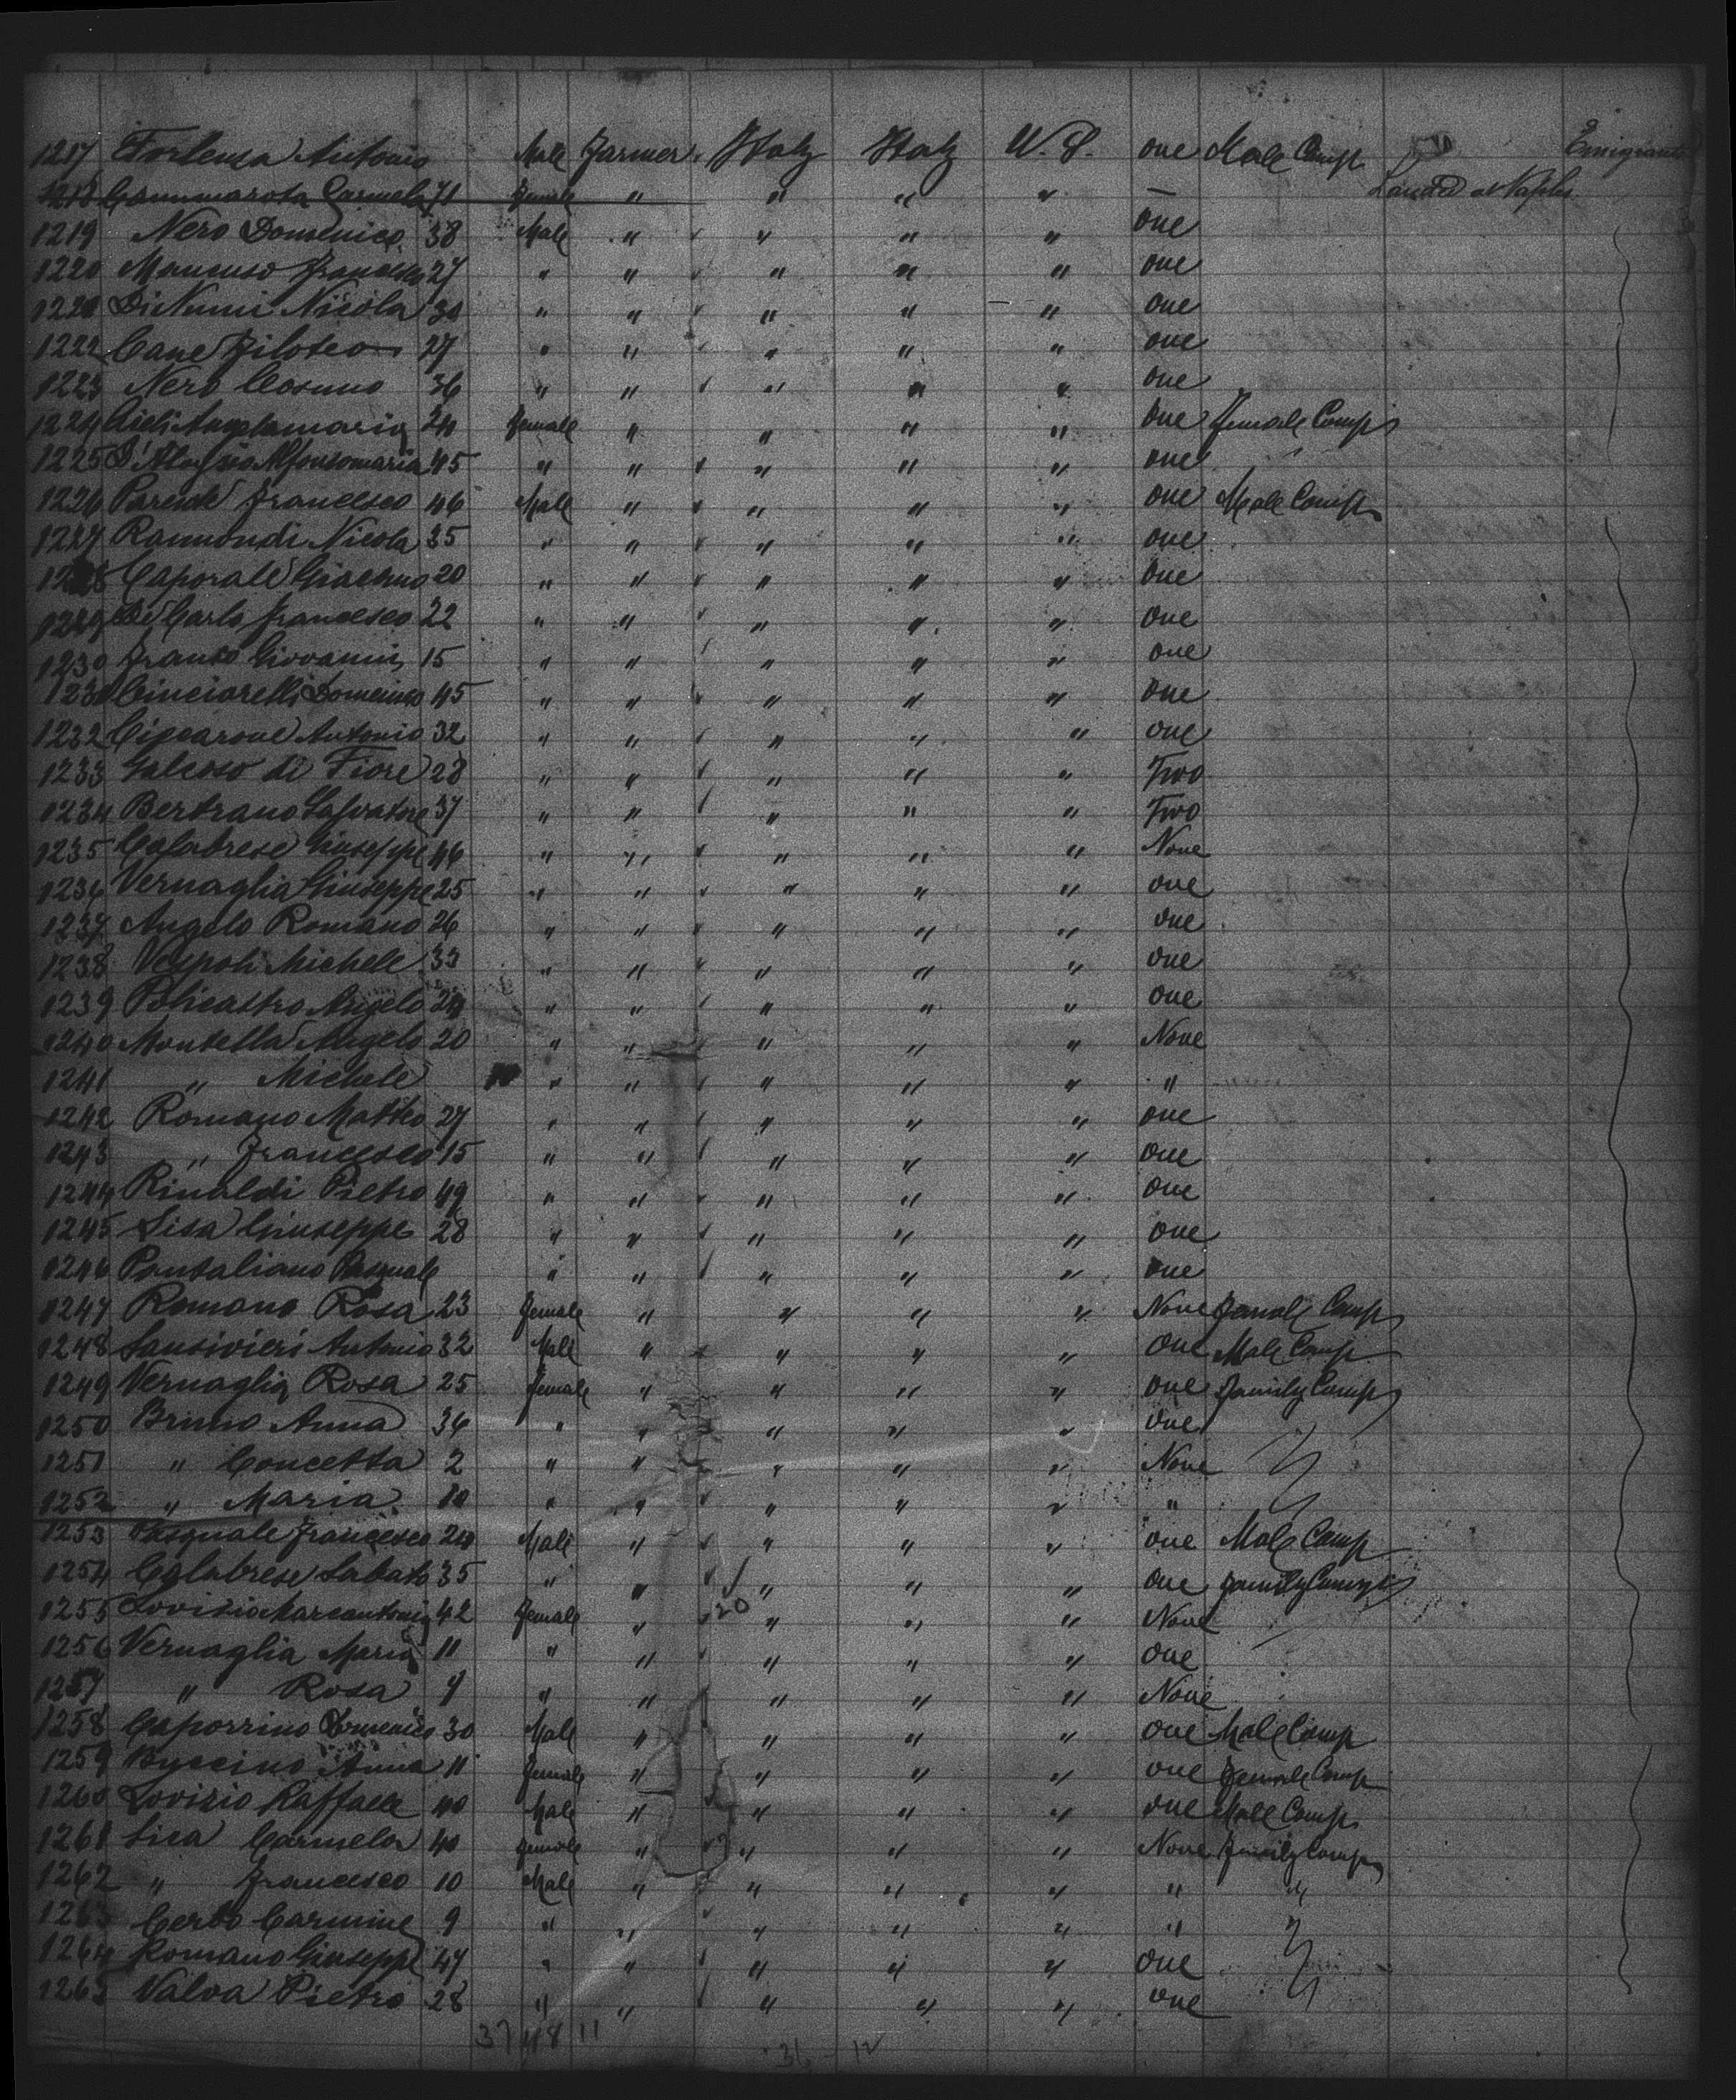 1217 Antonio Male Farmer Italy Italy U.S. one Male Comp Emigrants
1218 Cammarota Carmela 71 Female " " " " — Landed at Naples
1219 Nero Domenico 38 Male " " " " one
1220 Mancuso Francesco 27 " " " " " one
1221 Di Nunni Nicola 30 " " " " " one
1222 Cane Filoteo 27 " " " " " one
1223 Nero Cosimo 36 " " " " " one
1224 24 Female " " " " one Female Comp
1225 45 " " " " " one "
1226 Parente Francesco 46 Male " " " " one Male Comp
1227 Raimondi Nicola 35 " " " " " one
1228 Caporale Giacomo 20 " " " " " one
1229 Di Carlo Francesco 22 " " " " " one
1230 Franco Giovanni 15 " " " " " one
1231 Cinciarelli Domenico 45 " " " " " one
1232 Antonio 32 " " " " " one
1233 Galeoso di Fiore 28 " " " " " Two
1234 Bertrano Salvatore 37 " " " " " Two
1235 Calabrese Giuseppe 46 " " " " " None
1236 Vernaglia Giuseppe 25 " " " " " one
1237 Angelo Romano 26 " " " " " one
1238 Vespoli Michele 33 " " " " " one
1239 Policastro Angelo 24 " " " " " one
1240 Montella Angelo 20 " " " " " None
1241 " Michele " " " " " "
1242 Romano Matteo 27 " " " " " one
1243 " Francesco 15 " " " " " one
1244 Rinaldi Pietro 49 " " " " " one
1245 Sisa Giuseppe 28 " " " " " one
1246 Pantaliano Pasquale " " " " " one
1247 Romano Rosa 23 Female " " " " None Female Comp
1248 Antonio 32 Male " " " " one Male Comp
1249 Vernaglia Rosa 25 Female " " " " one Family Comp
1250 Bruno Anna 36 " " " " " one
1251 " Concetta 2 " " " " " None
1252 " Maria 10 " " " " " "
1253 Pasquale Francesco 24 Male " " " " one Male Comp
1254 Calabrese Sabato 35 " " " " " one Family Comp
1255 Lovisio Marcantonia 42 Female " 20 " " " None
1256 Vernaglia Maria 11 " " " " " one
1257 " Rosa 9 " " " " " None
1258 Caporrino Domenico 30 Male " " " " one Male Comp
1259 Buccino Anna 11 Female " " " " one Female Comp
1260 Lovisio Raffaele 40 Male " " " " one Male Comp
1261 Sica Carmela 40 Female " " " " None Family Comp
1262 " Francesco 10 Male " " " " " "
1263 Cerbo Carmine 9 " " " " " " "
1264 Romano Giuseppe 47 " " " " " one
1265 Valva Pietro 28 " " " " " one
37 48 11 36 12